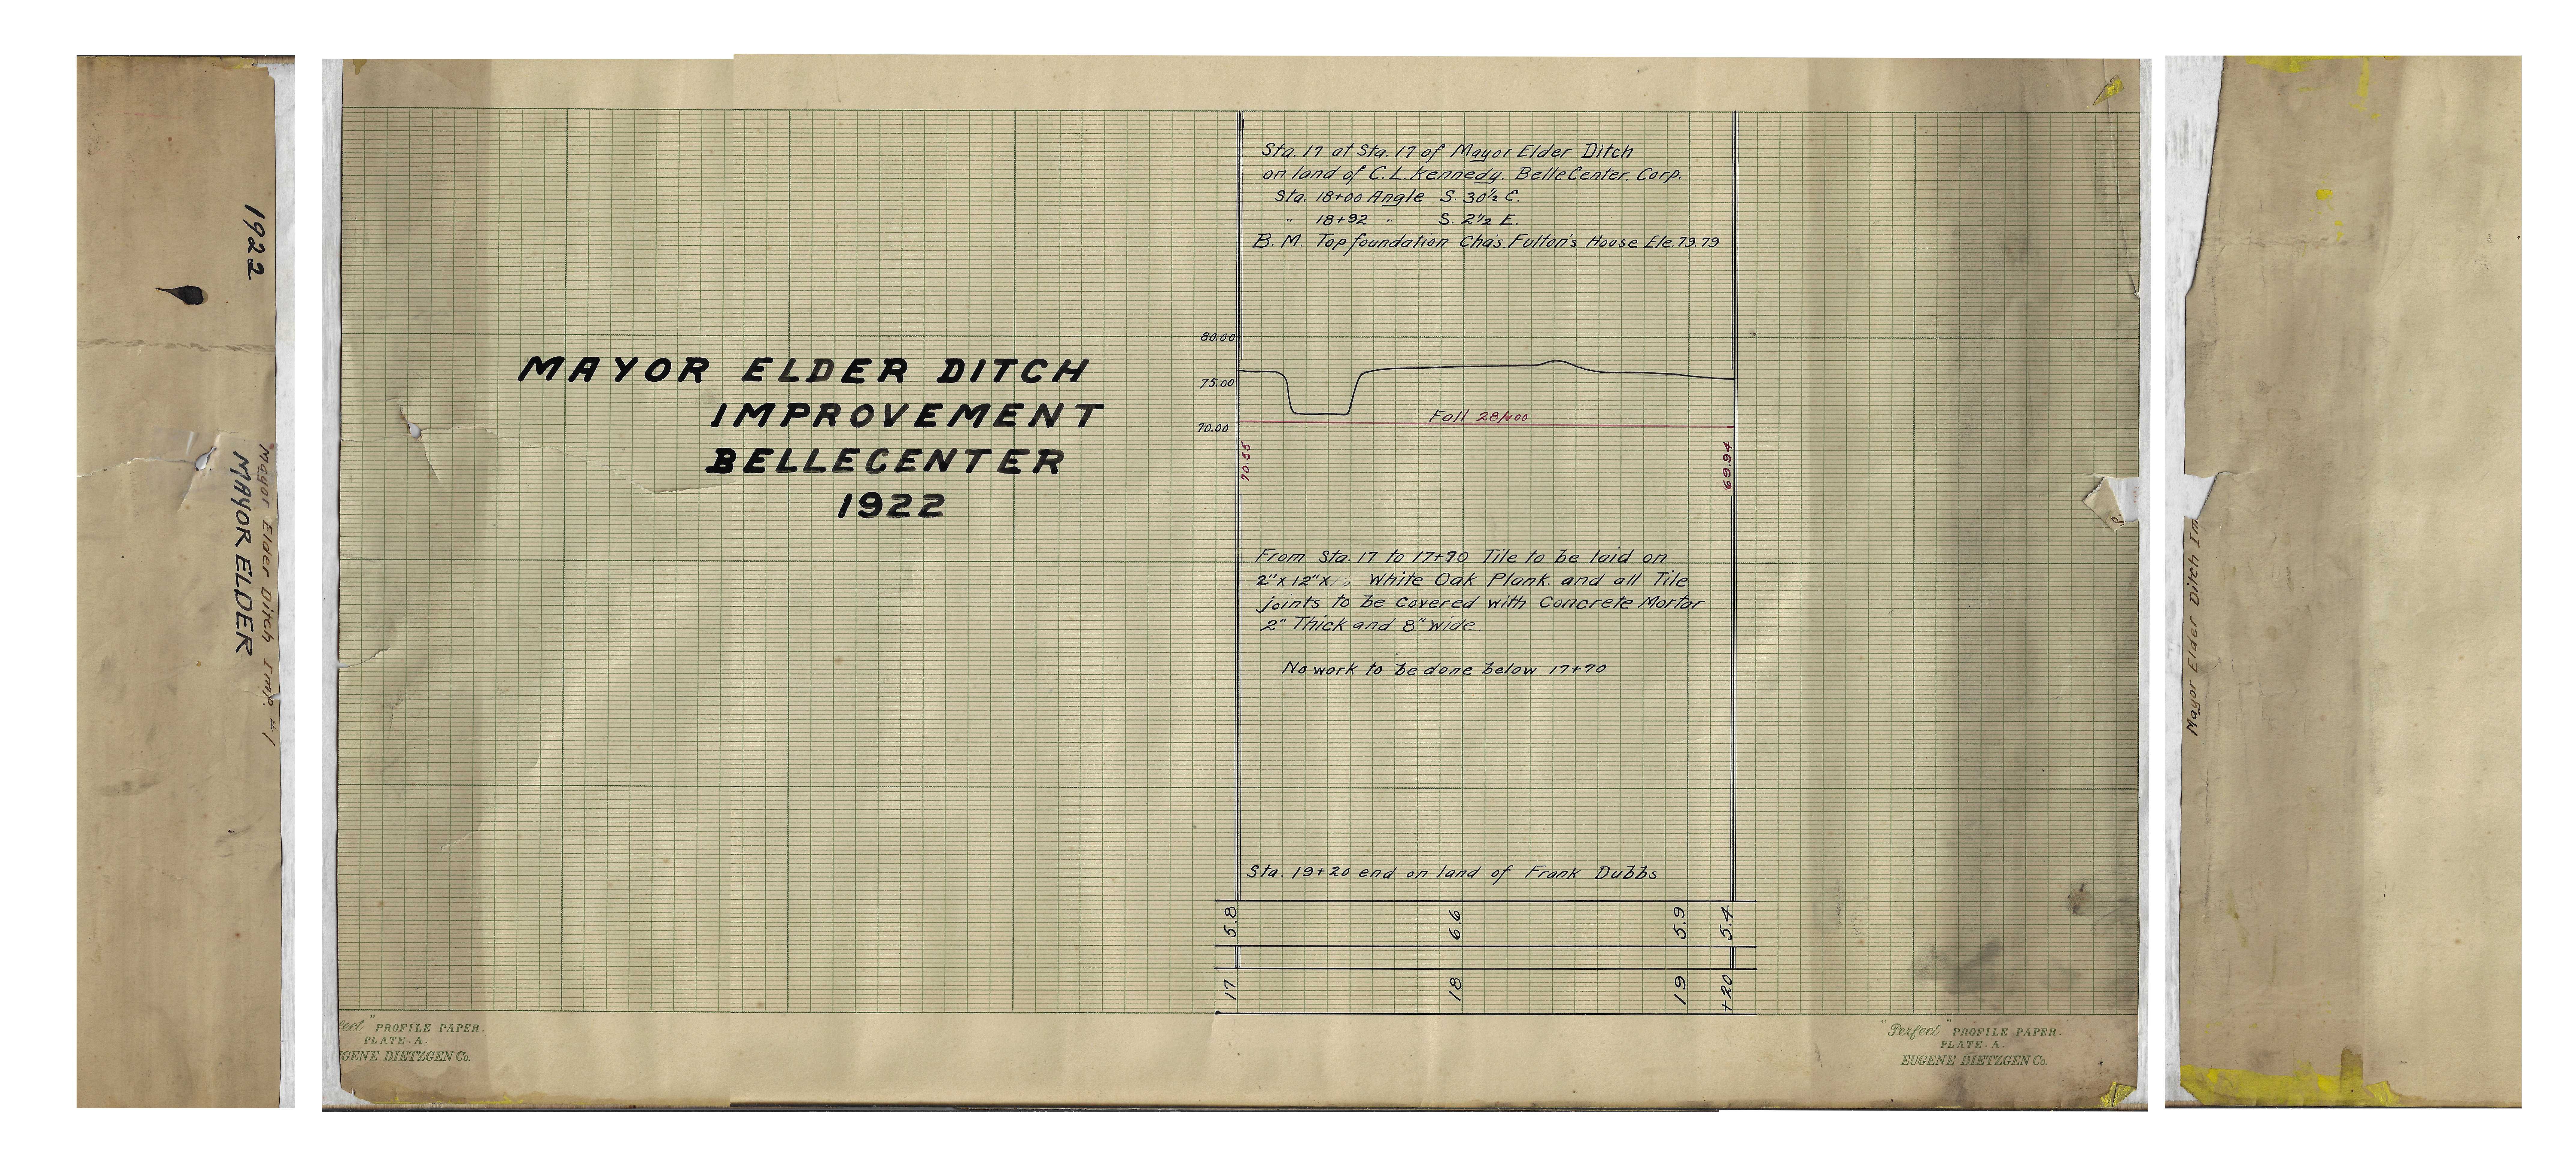 1922
Mayor Elder Ditch Imp. #1
MAYOR ELDER
MAYOR ELDER DITCH
IMPROVEMENT
BELLECENTER
1922
Sta. 17 at Sta. 17 of Mayor Elder Ditch
on land of C.L. Kennedy. BelleCenter. Corp.
Sta. 18+00 Angle S. 30½ E.
" 18+92 " S. 2½ E.
B. M. Top foundation Cha's. Fulton's House Ele. 79.79
80.00
75.00
70.00
Fall 28/400
70.55
69.94
From Sta. 17 to 17+70 Tile to be laid on
2" x 12" x White Oak Plank. and all Tile
joints to be covered with Concrete Mortar
2" Thick and 8" wide.
No work to be done below 17+70
Sta. 19+20 end on land of Frank Dubbs
5.8 6.6 5.9 5.4
17 18 19 +20
fect" PROFILE PAPER.
PLATE - A.
UGENE DIETZGEN Co.
"Perfect" PROFILE PAPER.
PLATE - A.
EUGENE DIETZGEN Co.
Mayor Elder Ditch Im